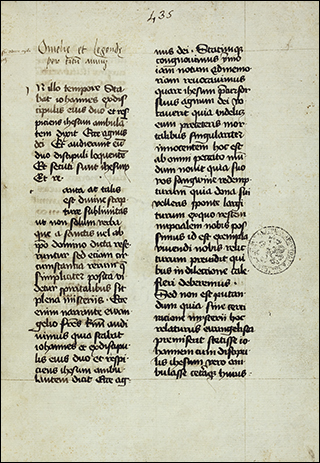 435
Omelie et Legende
per totum annum
In illo tempore Sta
bat iohannes et ex disci
pulis eius duo et res
piciens ihesum ambula
tem dixit Ecce agnus
dei Et audierunt eu
duo discipuli loquente
Et secuti sunt ihesum
Et re
tanta ac talis
est divine scrip
ture sublimitas
ut non solum verba
que a sanctis vel ab
ipso domino dicta refe
runtur sed etiam cir
cumstantia rerum que
simpliciter posita vi
detur spiritalibus sit
plena misteriis Ecce
enim narrante evan
gelio fratres karissimi audi
vimus quia stabat
iohannes et ex discipu
lis eius duo et respi
ciens ihesum ambu
lantem dicit Ecce ag
nus dei
iam notam ad memo
riam revocavimus
quare ihesum precursor
suus agnum dei vo
caverit quia videlicet
eum pre ceteris mor
talibus singulariter
innocentem hoc est
ab omni peccato mu
dum novit quia suo
nos sanguine redemp
turum quia dona sui
velleris sponte largi
turum exquo vestem
nuptialem nobis pos
simus id est exempla
vivendi nobis relic
turum previdit qui
bus in dilectione cale
fieri deberemus
Sed non est putan
dum quia sine cer
ratione misterii hoc
relaturus evangelista
premiserit stetisse io
hannem cum discipu
lis ihesum vero am
bulasse